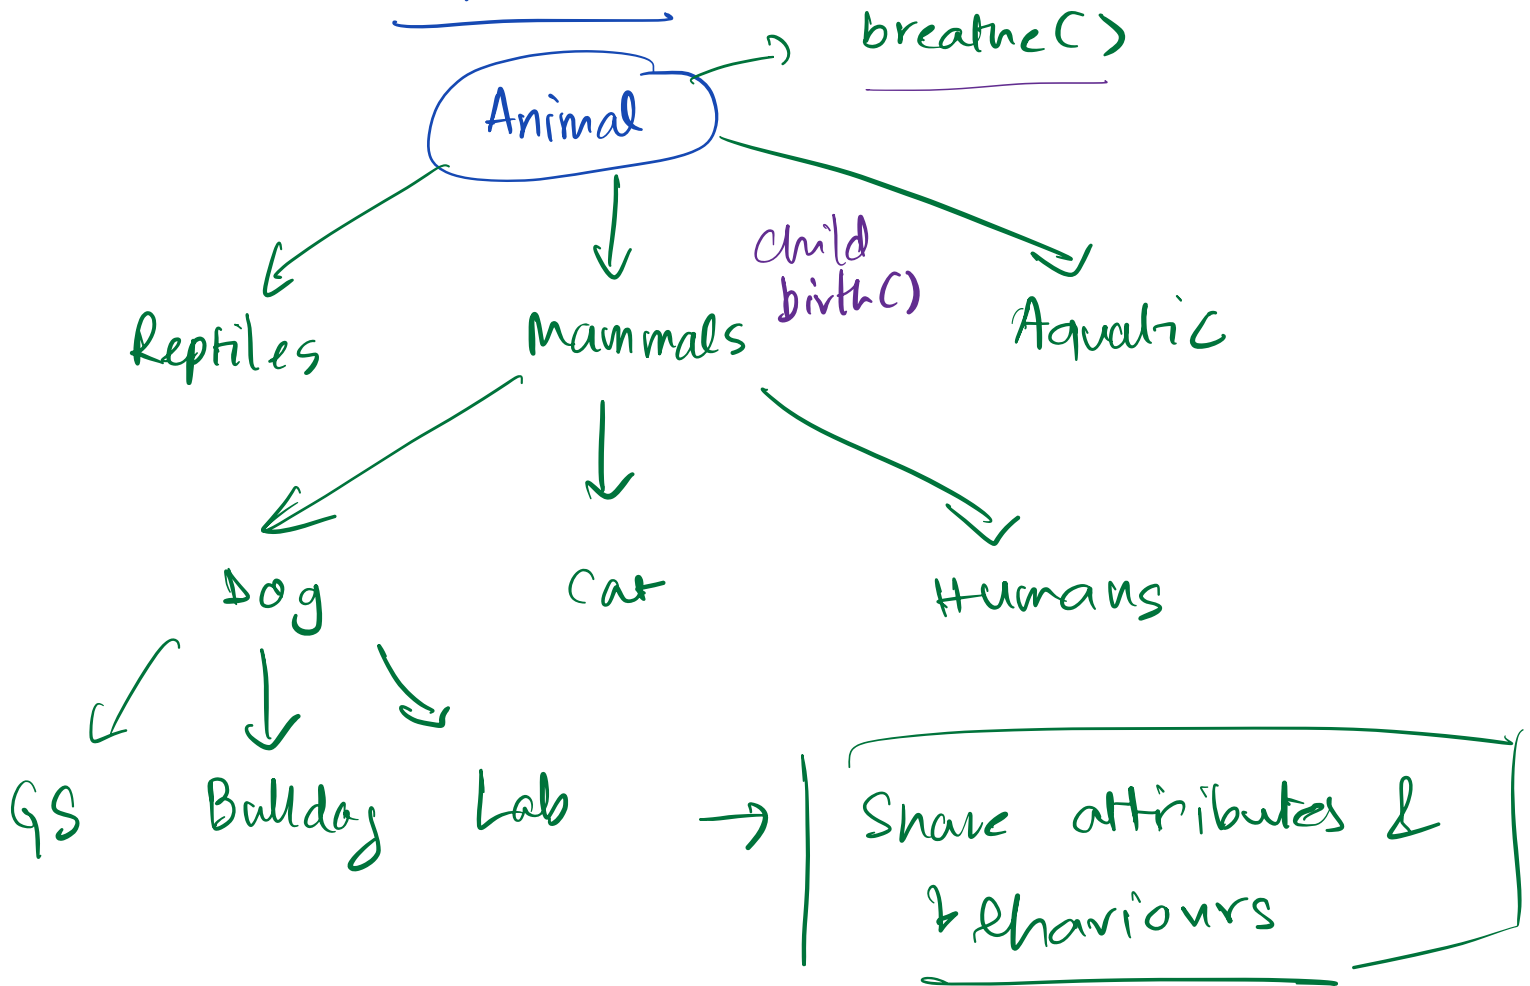 breathe()
Animal
child
birth()
Reptiles
Mammals
Aquatic
Dog
Cat
Humans
GS
Bulldog
Lab
Share attributes &
behaviours